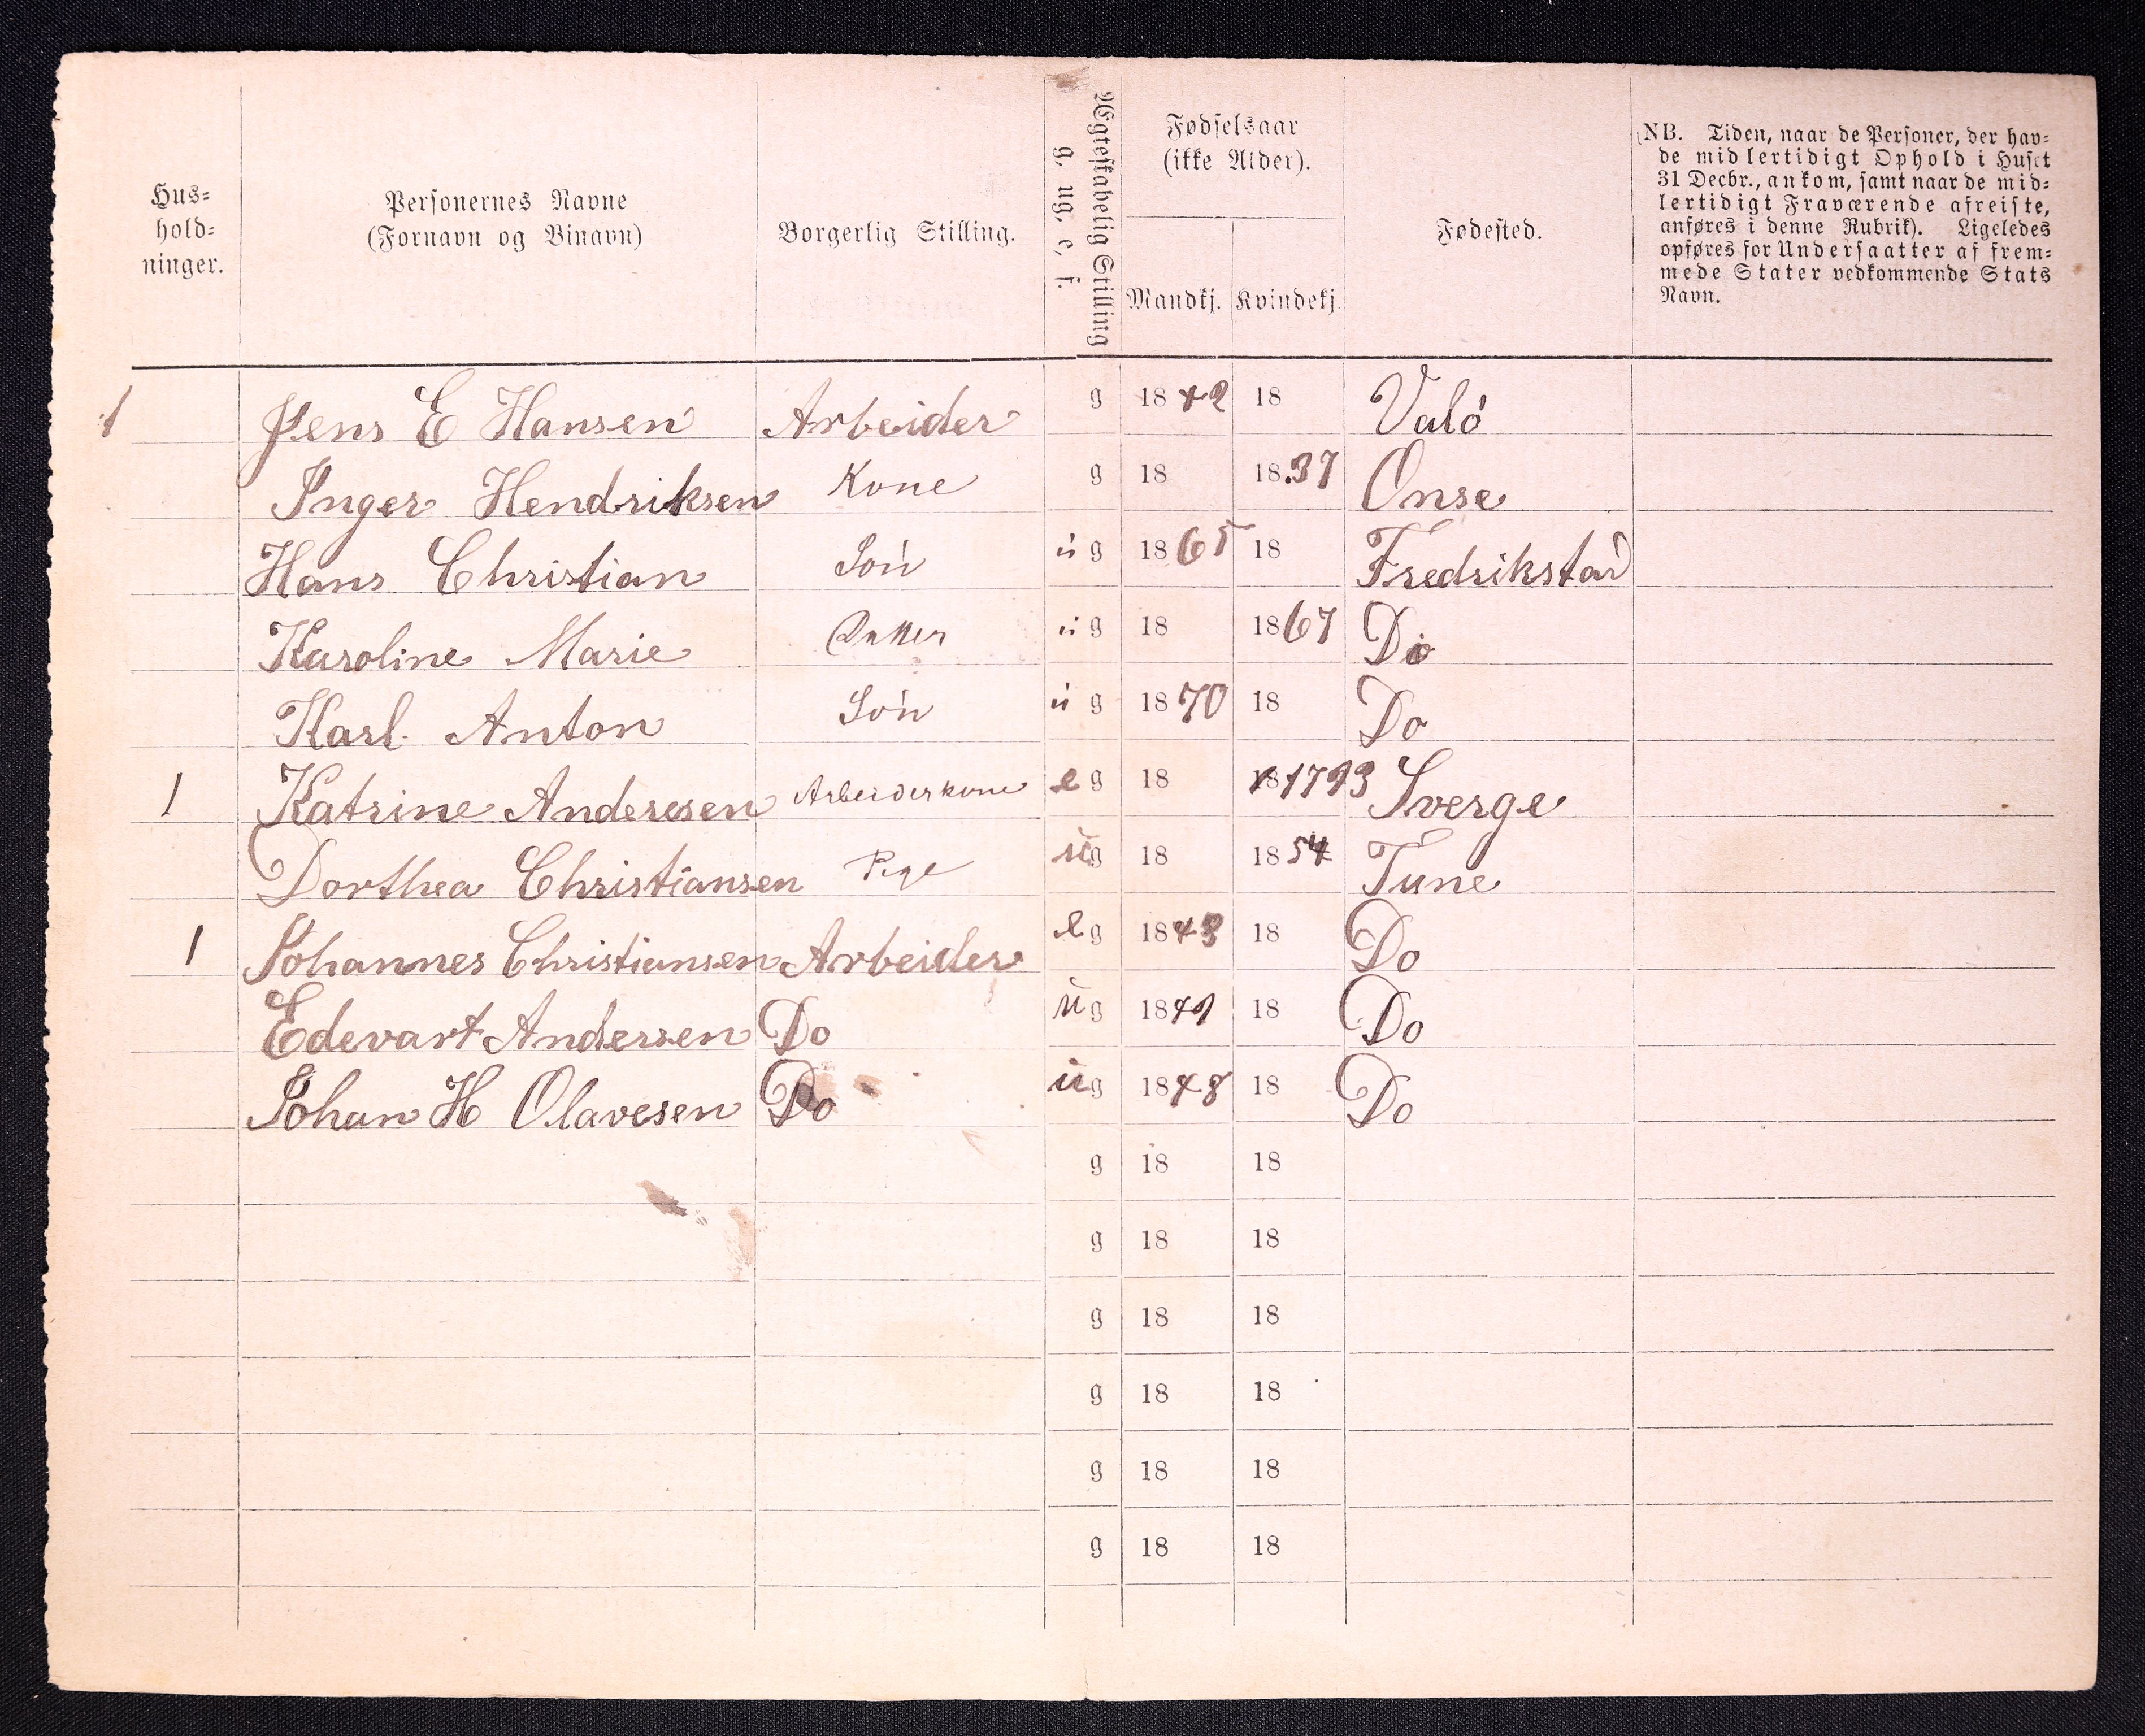 Hus-
hold-
ninger.
Personernes Navne
(Fornavn og Binavn)
Borgerlig Stilling.
Ægteskabelig Stilling
g. ug. e. f.
Fødselsaar
(ikke Alder).
Mandkj. Kvindekj.
Fødested.
(NB. Tiden, naar de Personer, der hav-
de midlertidigt Ophold i Huset
31 Decbr., ankom, samt naar de mid-
lertidigt Fraværende afreiste,
anføres i denne Rubrik). Ligeledes
opføres for Undersaatter af frem-
mede Stater vedkommende Stats
Navn.
1 Jens E Hansen Arbeider g 1842 18 Valö
Inger Hendriksen Kone g 18 1837 Onse
Hans Christian Sön ug 1865 18 Fredrikstad
Karoline Marie Datter ug 18 1867 Do
Karl Anton Sön ug 1870 18 Do
1 Katrine Anderesen Arbeiderkone e g 18 18 1793 Sverge
Dorthea Christiansen Pige ug 18 1854 Tune
1 Johannes Christiansen Arbeider e g 1843 18 Do
Edevart Andersen Do ug 1849 18 Do
Johan H Olavesen Do ug 1848 18 Do
g 18 18
g 18 18
g 18 18
g 18 18
g 18 18
g 18 18